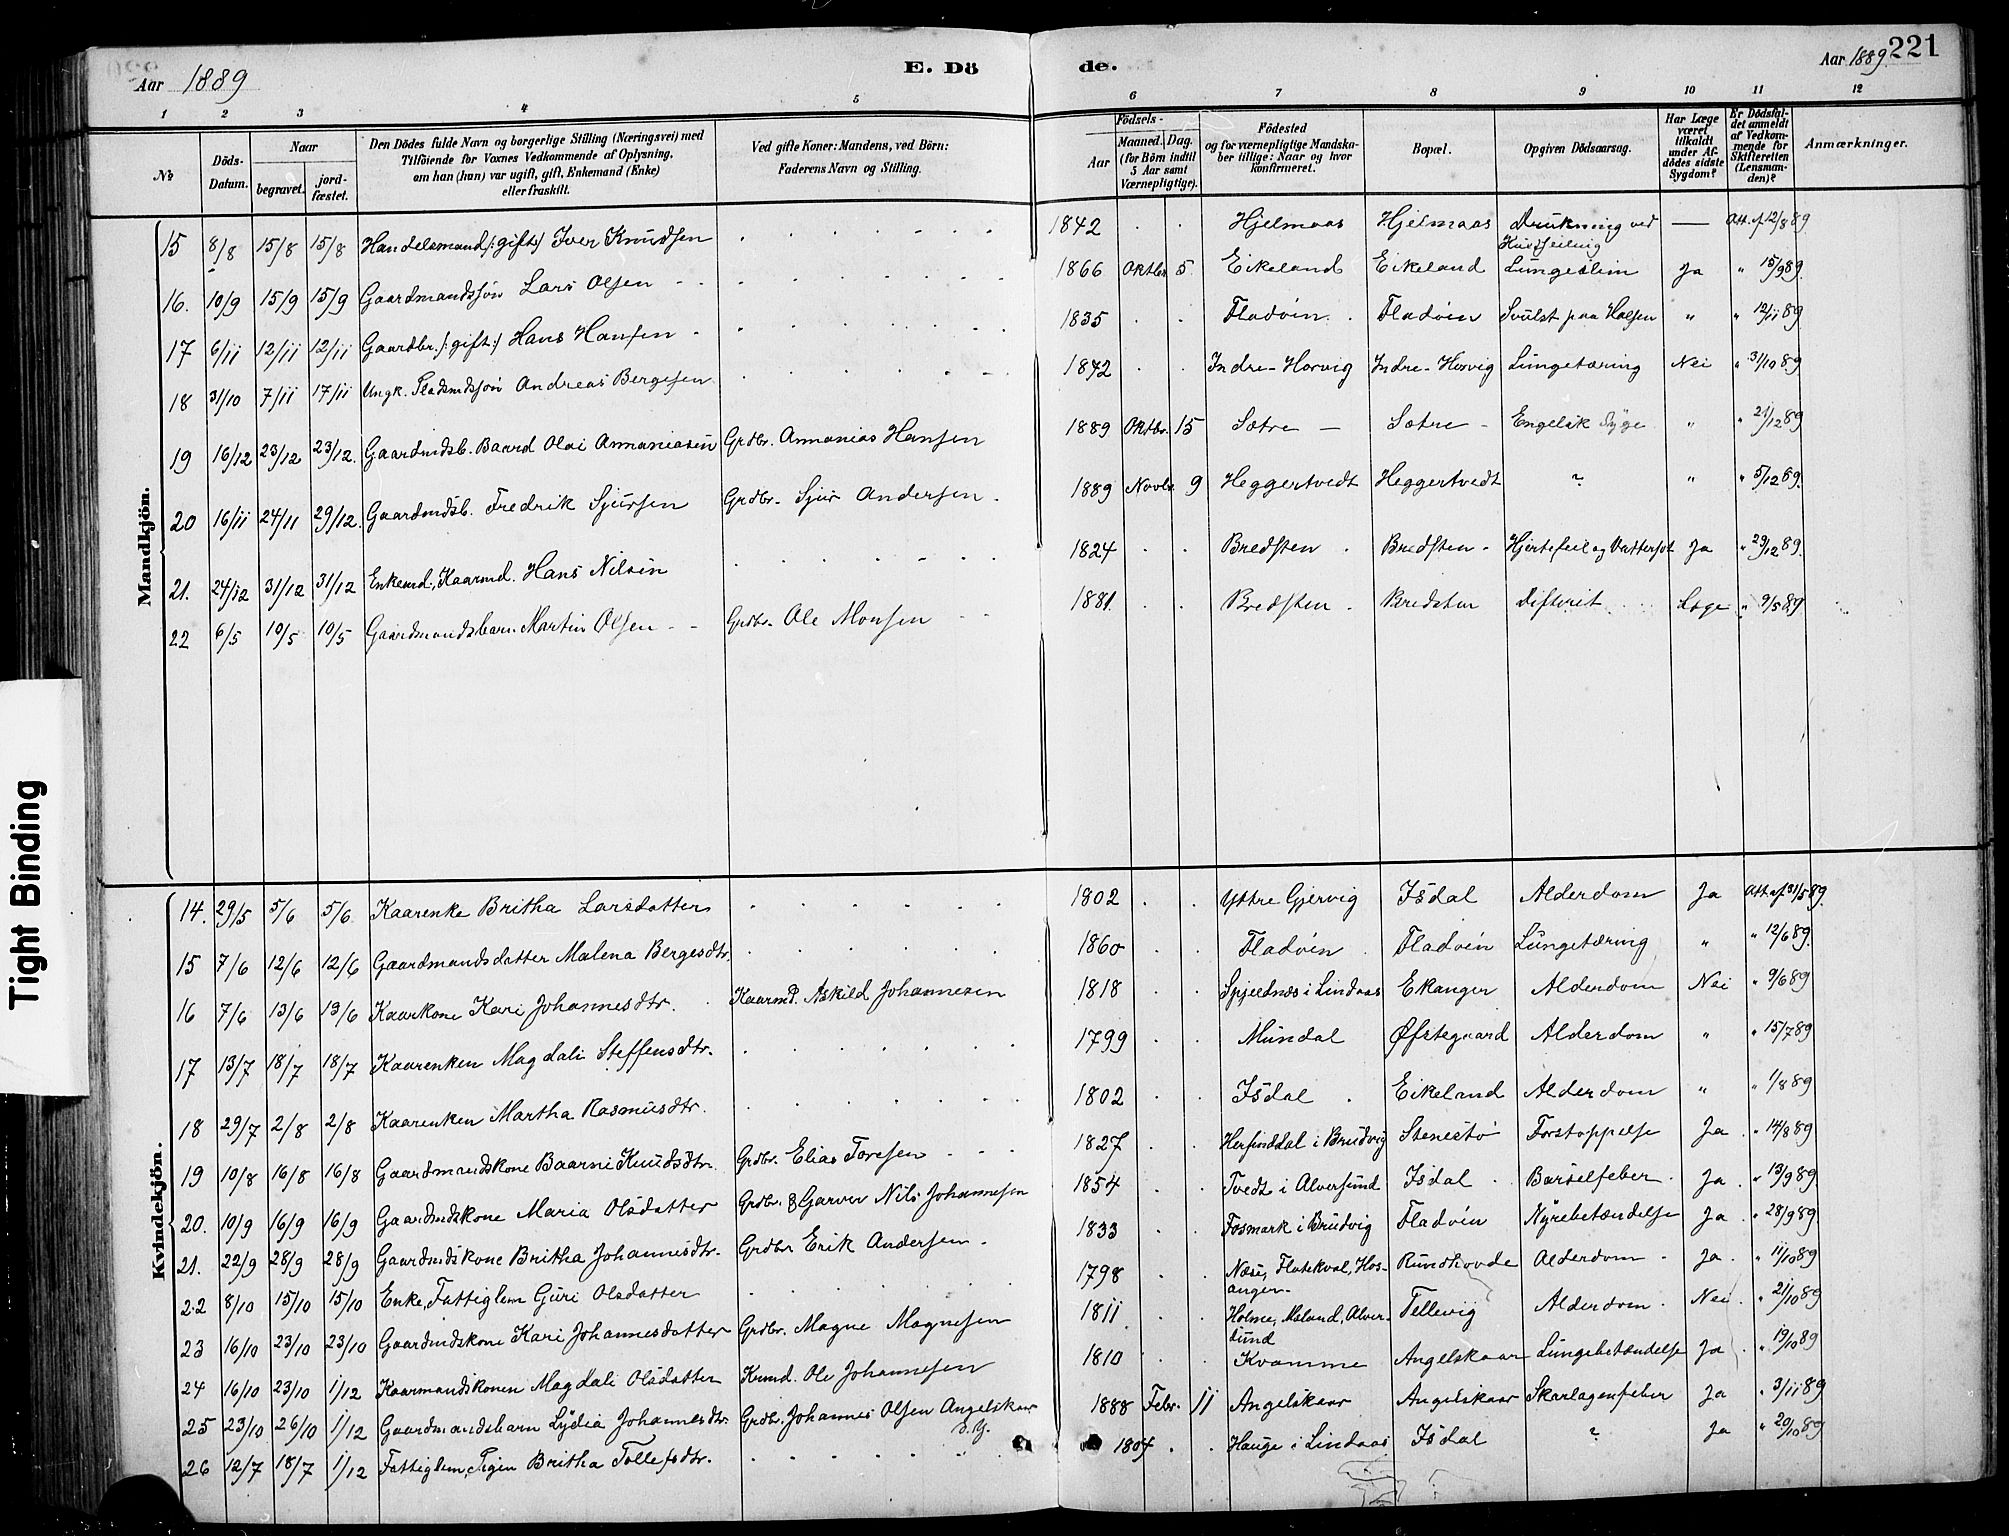 Aar 1889
E. Dö
de.
Aar 1889. 221
1 2 3 4 5 6 7 8 9 10 11 12
№
Döds-Datum.
Naar
begravet.
jord-fæstet.
Den Dödes fulde Navn og borgerlige Stilling (Næringsvei) med
Tilföiende for Voxnes Vedkommende af Oplysning.
om han (hun) var ugift, gift, Enkemand (Enke)
eller fraskilt.
Ved gifte Koner: Mandens, ved Börn:
Faderens Navn og Stilling.
Födsels-
Aar
Maaned. Dag.
(for Börn indtil
5 Aar samt
Værnepligtige).
Födested
og for værnepligtige Mandska-
ber tillige: Naar og hvor
konfirmeret.
Bopæl.
Opgiven Dödsaarsag.
Har Læge
været
tilkaldt
under Af-
dödes sidste
Sygdom?
Er Dödsfal-
det anmeldt
af Vedkom-
mende for
Skifteretten
(Lensman-
den)?
Anmærkninger.
Mandkjön.
15 8/8 15/8 15/8 Handelsmand /:gift:/ Iver Knudsen 1842 Hjelmaas Hjelmaas Drukning ved — Att. af 12/8 89
16. 10/9 15/9 15/9 Gaardmandssøn Lars Olsen 1866 Oktbr. 5. Eikeland Eikeland Lungeslim Ja " 15/9 89.
17 6/11 12/11 12/11 Gaardbr. /:gift:/ Hans Hansen 1835 Fladöen Fladöen Svulst paa Halsen " " 12/11 89
18 31/10 7/11 17/11 Ungk. Pladsmdssøn Andreas Bergesen 1842 Indre-Horvig Indre-Horvig Lungetæring Nei " 31/10 89
19 16/12 23/12 23/12. Gaardmdsb. Baard Olai Annaniasen Grdbr. Annanias Hansen 1889 Oktbr. 15 Sætre — Sætre - Engelsk Syge " " 21/12 89
20 16/11 24/11 29/12. Gaardmdsb. Fredrik Sjursen Grdbr. Sjur Andersen 1889 Novbr 9 Heggertvedt Heggertvedt ? " " 5/12 89.
21. 24/12 31/12 31/12 Enkemd., Kaarmd. Hans Nilsen 1824 Bredsten Bredsten Hjertefeil og Vattersot Ja " 29/12 89.
22 6/5 10/5 10/5 Gaardmandsbarn Martin Olsen Grdbr. Ole Monsen 1881. Bredsten Bredsten Difterit Læge " 9/5 89
Kvindekjön.
14. 29/5 5/6 5/6 Kaarenke Britha Larsdatter 1802 Yttre Gjervig Isdal Alderdom Ja Att. af 31/5 89.
15 7/6 12/6 12/6 Gaardmandsdatter Malena Bergesdtr. 1860 Fladöen Fladöen Lungetæring " " 12/6 89.
16 7/6 13/6 13/6 Kaarkone Kari Johannesdtr. Kaarmd. Askild Johannesen 1818 Spjeldnæs i Lindaas Ekanger Alderdom Nei " 9/6 89
17 13/7 18/7 18/7 Kaarenken Magdali Steffensdtr. 1799 Mundal Øfstegaard Alderdom " " 15/7 89
18 29/7 2/8 2/8 Kaarenken Martha Rasmusdtr. 1802 Isdal Eikeland Alderdom " " 1/8 89
19 10/8 16/8 16/8 Gaardmandskone Baarni Knudsdtr. Grdbr. Elias Toresen 1827 Herfinddal i Brudvig Stenestø Forstoppelse Ja " 14/8 89
20. 10/9 16/9 16/9 Gaardmdskone Maria Olsdatter Grdbr. & Garver Nils Johannesen 1854 Tvedt i Alversund Isdal Barselfeber Ja " 13/9 89
21. 22/9 28/9 28/9 Gaardmdskone Britha Johannesdtr. Grdbr Erik Andersen 1833 Fosmark i Brudvig Fladöen Nyrebetændelse Ja " 28/9 89
22 8/10 15/10 15/10 Enke, Fattiglem Guri Olsdatter 1798 Næse, Flatekval, Hos-anger Rundhovde Alderdom Ja " 11/10 89
23 16/10 23/10 23/10 Gaardmdskone Kari Johannesdatter Grdbr. Magne Magnesen 1811 Holme, Alver-sund Tellevig Alderdom Nei " 21/10 89
24 16/10 23/10 1/12 Kaarmandskonen Magdali Olsdatter Krmd. Ole Johannesen 1810 Kvamme Angelskaar Lungebetændelse Ja " 19/10 89
25 23/10 26/10 1/12 Gaardmandsbarn Lydia Johannesdtr. Grdbr. Johannes Olsen Angelskaar 1888 Febr. 11 Angelskaar Angelskaar Skarlagenfeber Ja " 3/11 89
26 12/7 18/7 1/12 Fattiglem, Pigen Britha Tollefsdtr. 1804 Hauge i Lindaas Isdal ? Ja " 20/10 89
Tight Binding